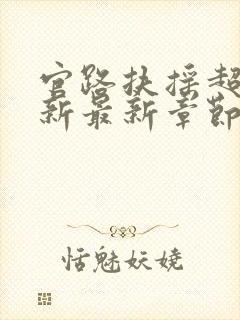 官路扶摇超
新最新章节
恬魅妖娆